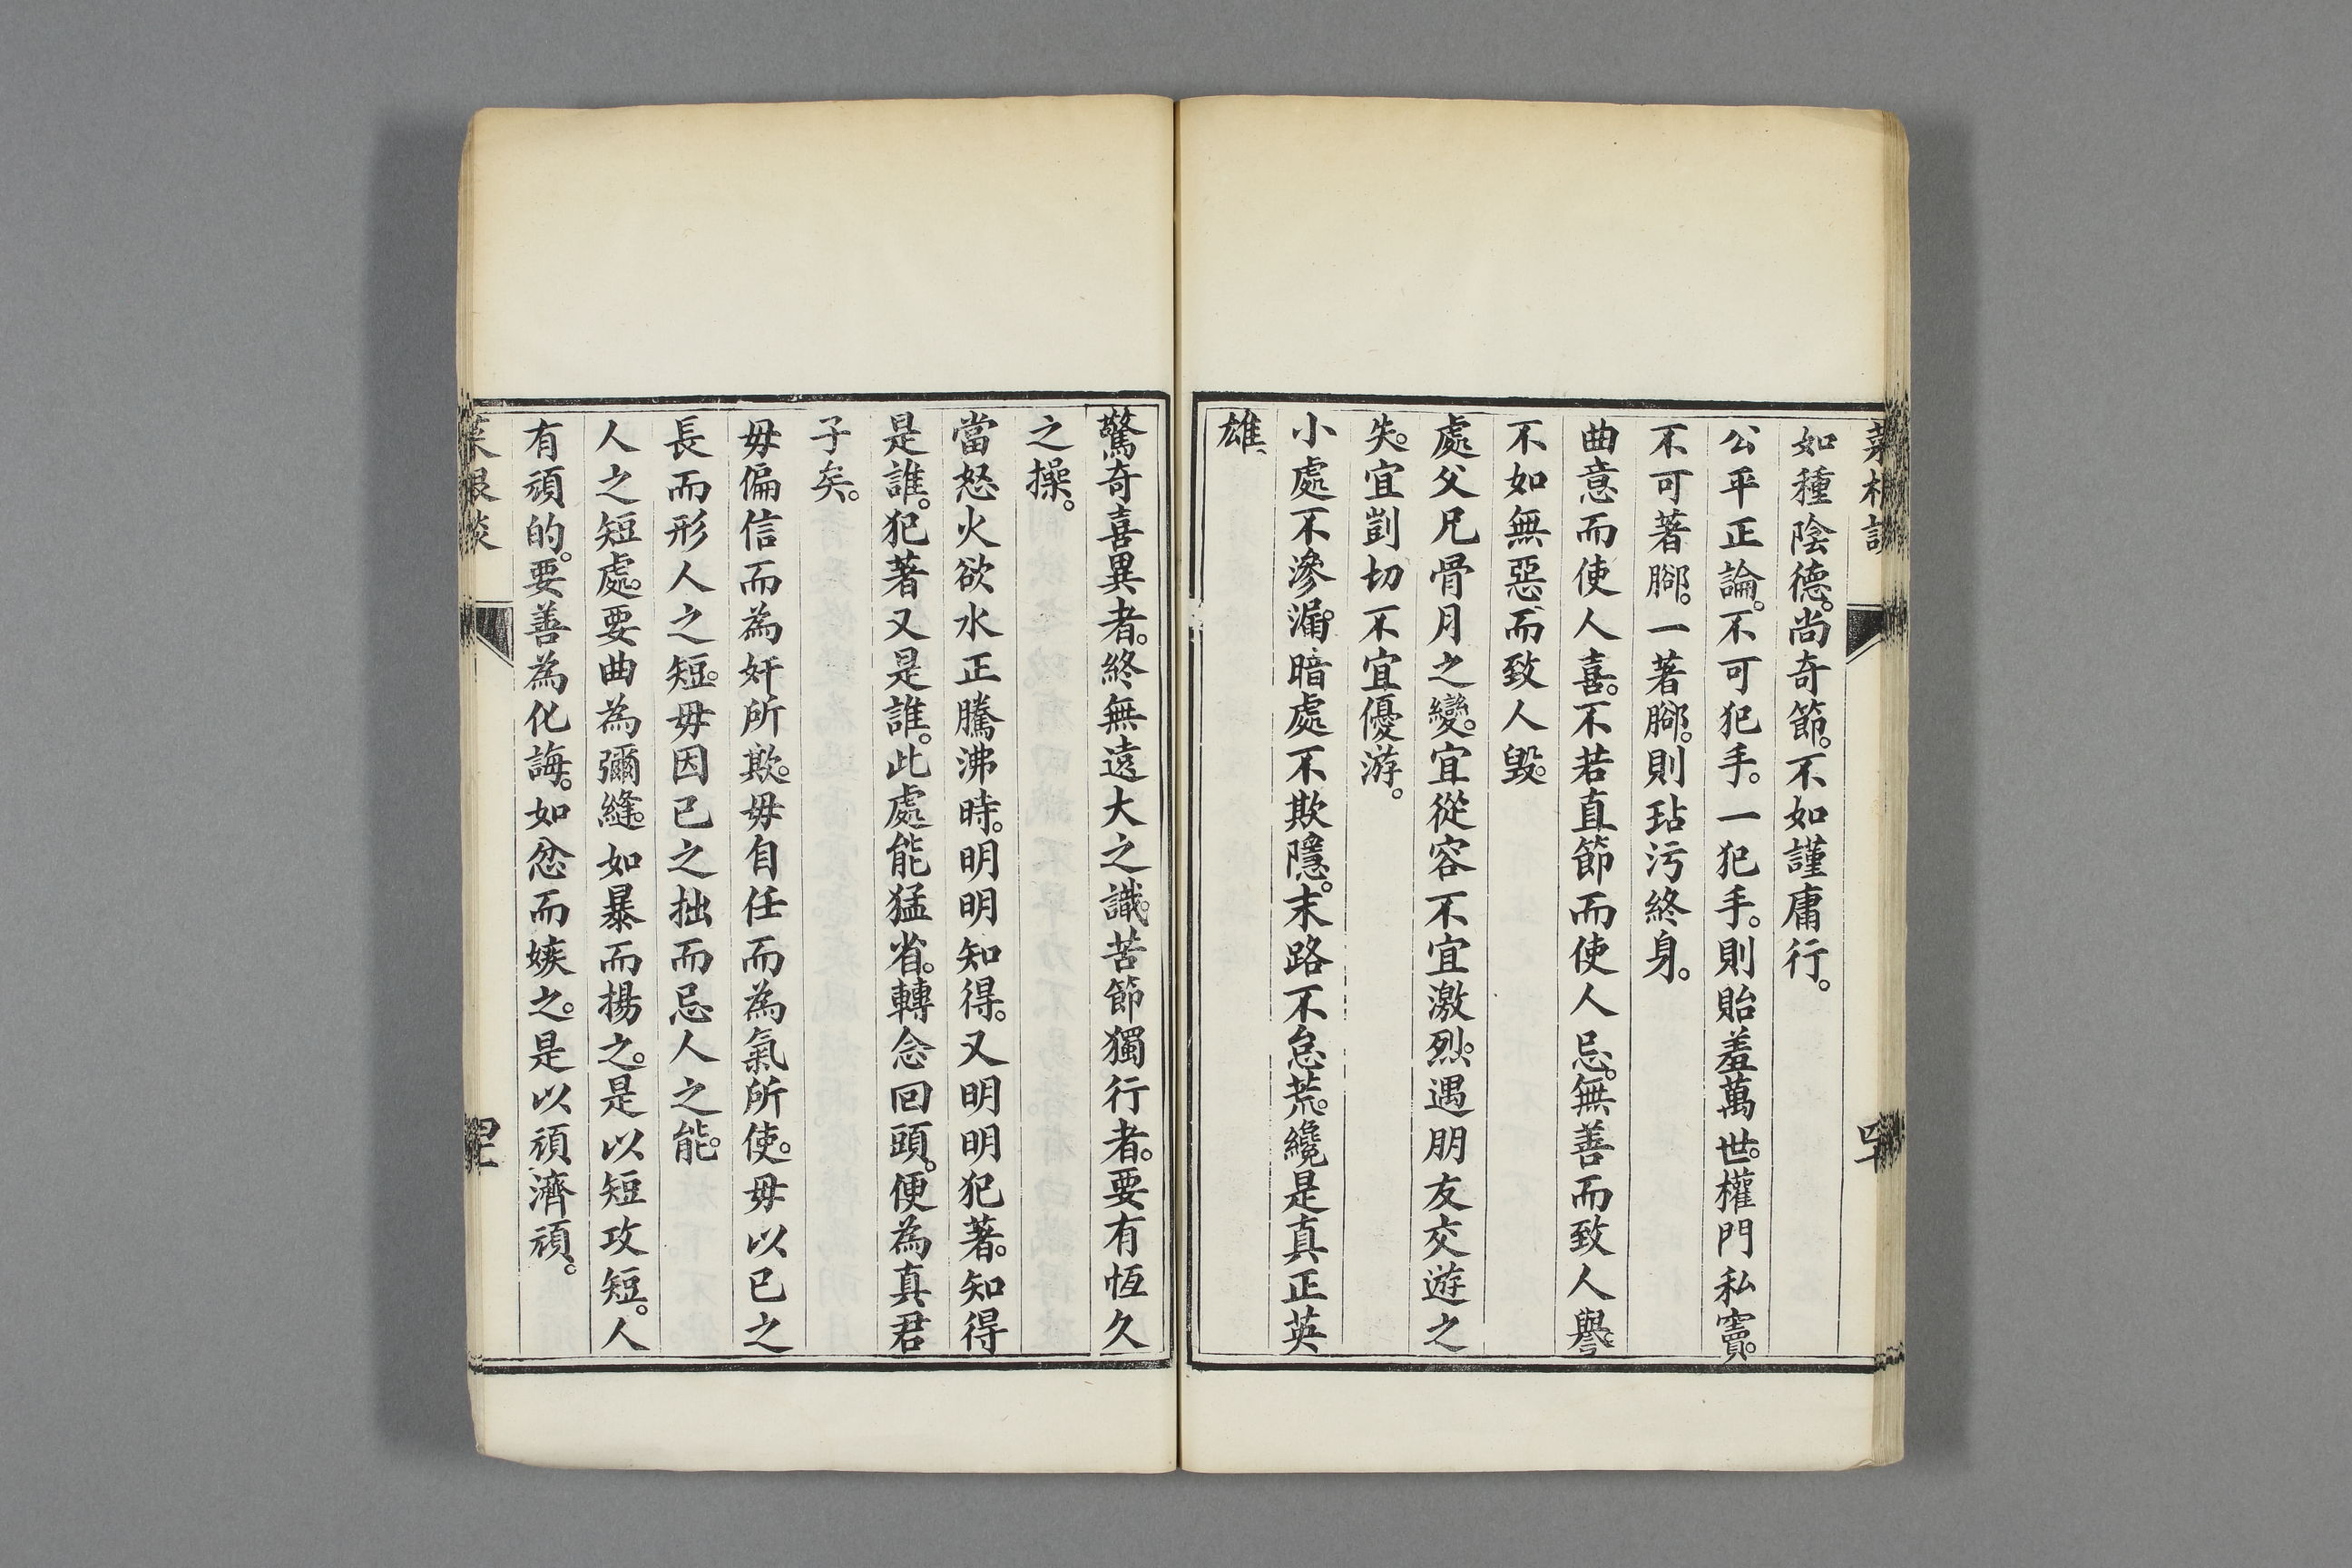 如種陰德。尚奇節。不如謹庸行。
公平正論。不可犯手。一犯手。則貽羞萬世。權門私竇。
不可著腳。一著腳。則玷污終身。
曲意而使人喜。不若直節而使人忌。無善而致人譽。
不如無惡而致人毀。
處父兄骨月之變。宜從容不宜激烈。遇朋友交遊之
失。宜剴切不宜優游。
小處不滲漏。暗處不欺隱。末路不怠荒。纔是真正英
雄、
驚奇喜異者。終無遠大之識。苦節獨行者。要有恆久
之操。
當怒火欲水正騰沸時。明明知得。又明明犯著。知得
是誰。犯著又是誰。此處能猛省。轉念回頭。便為真君
子矣。
毋偏信而為奸所欺。毋自任而為氣所使。毋以已之
長而形人之短。毋因已之拙而忌人之能。
人之短處。要曲為彌縫。如暴而揚之。是以短攻短。人
有頑的。要善為化誨。如忿而嫉之。是以頑濟頑。
菜根談